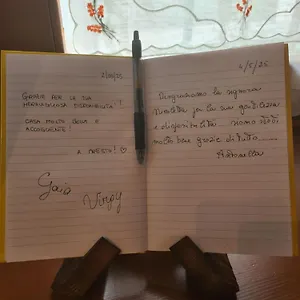 GRAZIE PER LA TUA
MERAVIGLIOSA DISPONIBILITÀ!
CASA MOLTO BELLA E
ACCOGLIENTE!
A PRESTO! ♡
Gaia
Virgy
4/5/25
Ringraziamo la signora
per la sua gentilezza
e disponibilità
molto bene grazie di tutto
Antonella